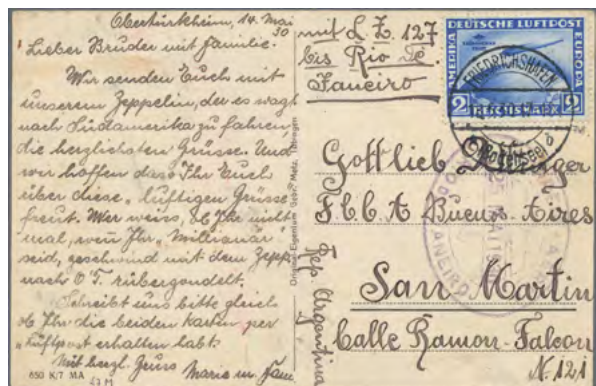 Obertürkheim, 14. Mai
30
Lieber Bruder mit Familie.
Wir senden Euch mit
unserem Zeppelin, der es wagt
nach Südamerika zu fahren,
die herzlichsten Grüsse. Und
wir hoffen dass Ihr Euch
über diese „luftigen Grüsse
freut. Wer weiss, ob Ihr nicht
mal, wenn Ihr „Millionär"
seid, geschwind mit dem Zepp.
nach O'T. rübergondelt.
Schreibt uns bitte gleich
ob Ihr die beiden Karten per
Luftpost erhalten habt.
Mit herzl. Gruss Marie m. Fam
650 K/7 MA
Original-Eigentum Gebr. Metz, Tübingen
mit L. Z. 127
bis Rio De
Janeiro
DEUTSCHE LUFTPOST
AMERIKA
EUROPA
2 REICHSMARK 2
FRIEDRICHSHAFEN
(Bodensee)
Gottlieb
F.C.C.A Buenos-Aires
San Martin
Calle Ramon-Falcon
N. 121
Rep. Argentina
JANEIRO